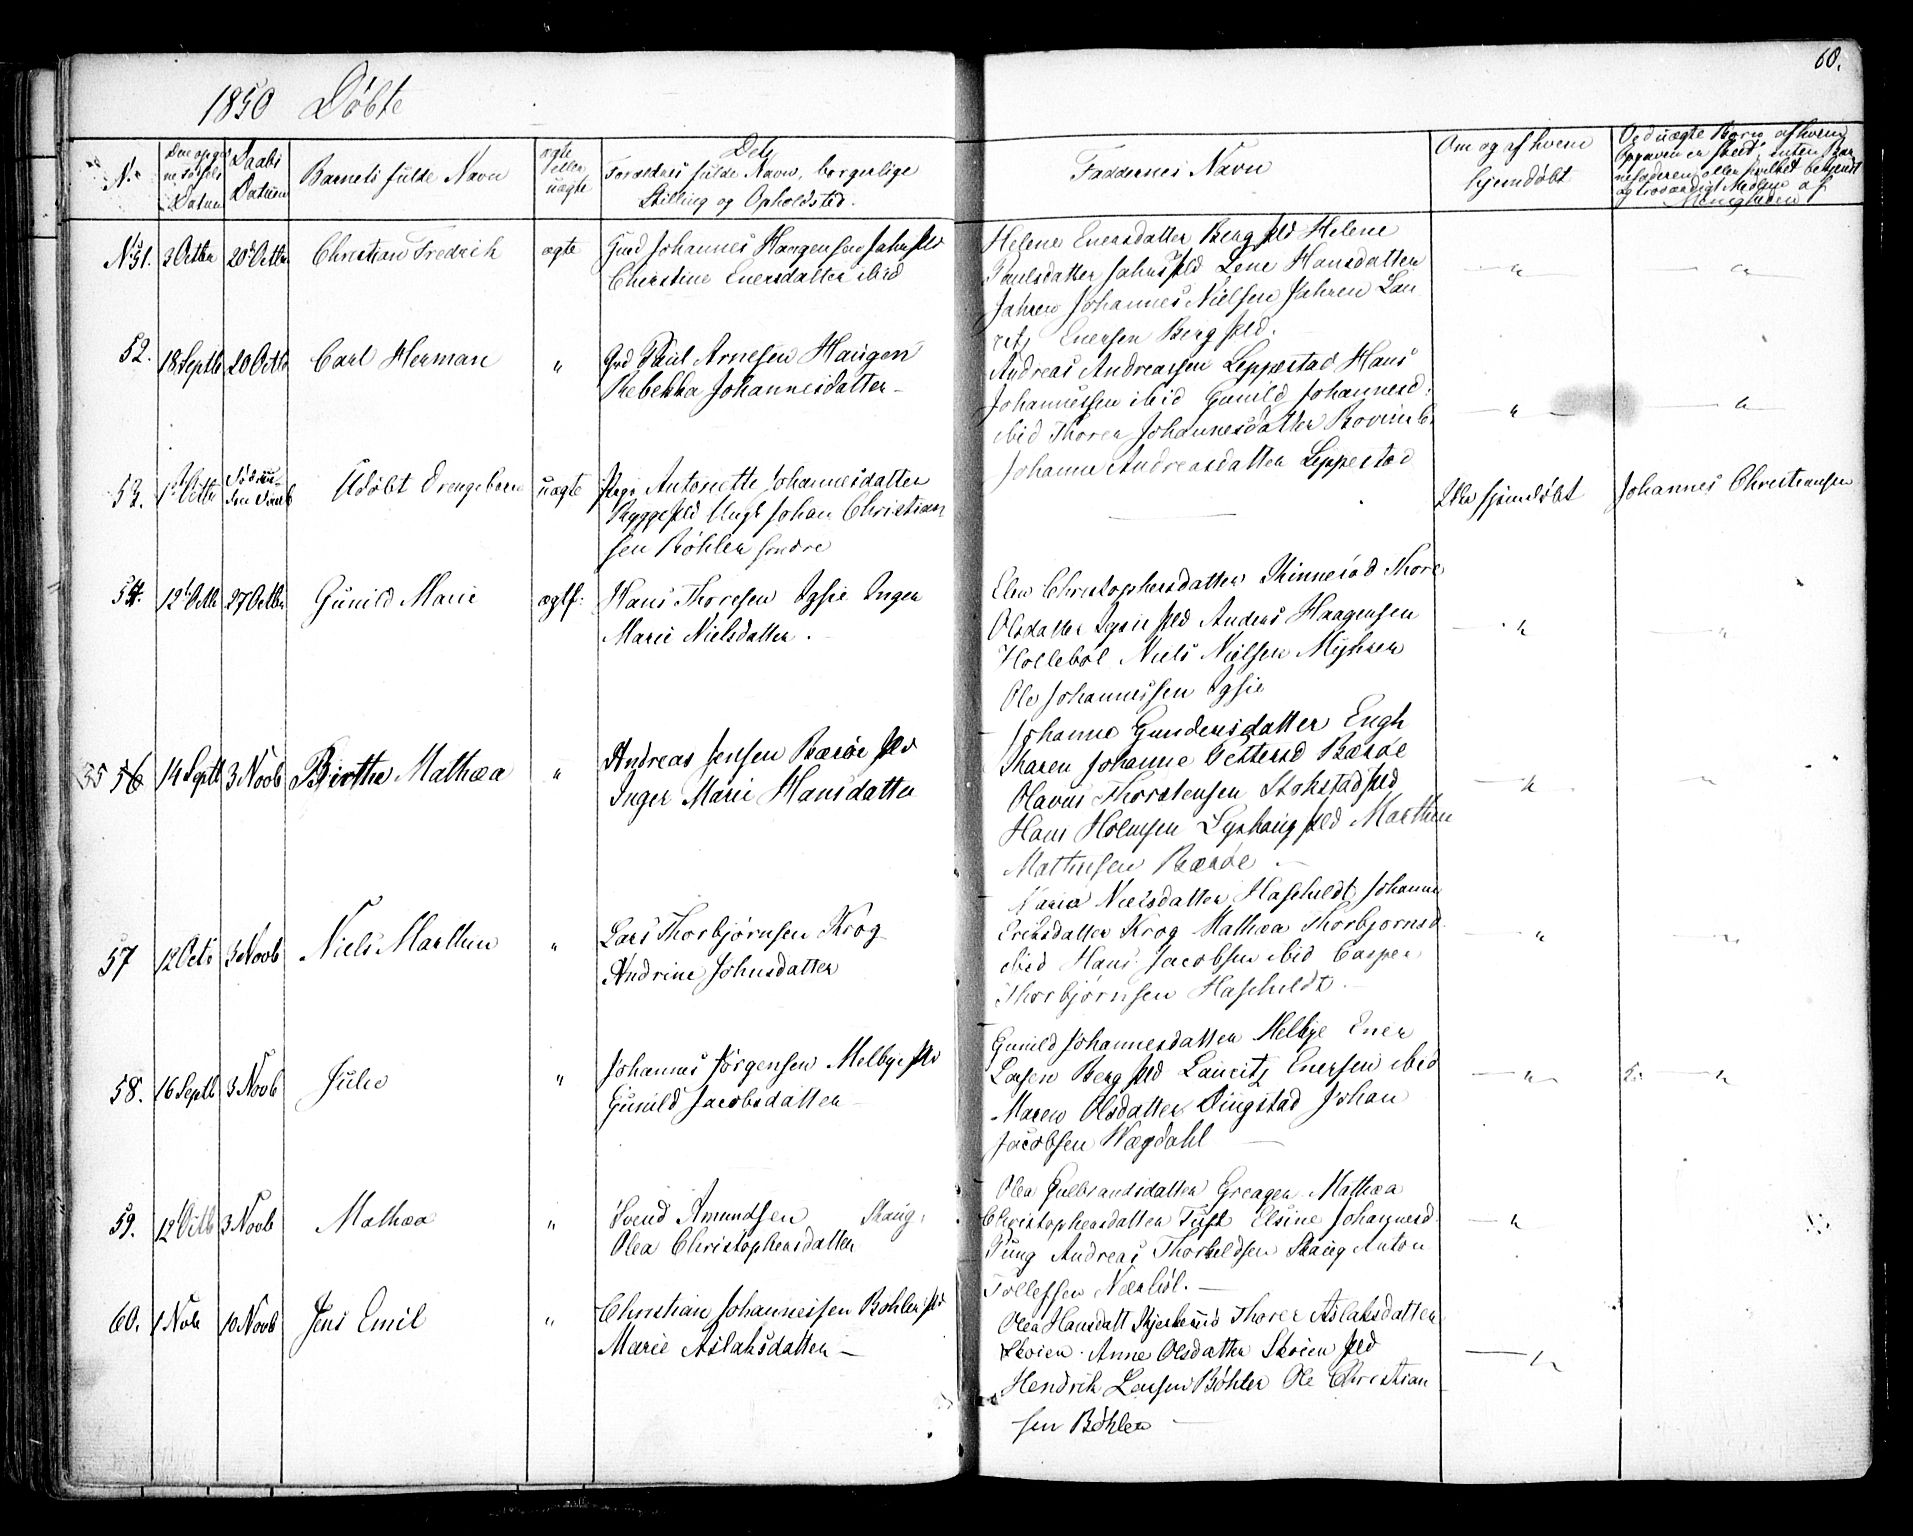 1850 Döbte
60.
No
Den opgivne Födsels Datum
Daabs Datum
Barnets fulde Navn
ægte eller uægte
Forældres fulde Navn, borgerlige
Stilling og Opholdsted.
Faddernes Navn
Om og af hvem
hjemdöbt
Ved uægte Börn, af hvem
Opgaven er skeet, enten Bar
nefaderen eller hvilket bekjendt
og troværdigt Medlem af
Menigheden
No 51. 3 Octbr 20de Octbr Christian Fredrik ægte
Christine Enersdatter ibid
Helene Enersdatter Berg Pld Helene
Paulsdatter Jahr Pld Lene Hansdatter
Jahren Johannes Nielsen Jahren Lau
ritz Enersen Berg Pld.
52. 18 Septb 20 Octb Carl Herman "
Grd Paul Arnesen Haugen
Rebekka Johannesdatter
Andreas Andreassen Leppestad Hans
Johannessen ibid Gunild Johannesd:
ibid Thorer Johannesdatter
Johanne Andreasdatter Leppestad
53. 1st Octbr Udöbt Drengebarn uægte
Pige Antonette Johannesdatter
Rygge Pld Ungk Johan Christian
sen Böhler söndre
Ikke hjemdöbt
Johannes Christiansen
54. 12te Octb 27 Octbr Gunild Marie ægtf:
Hans Thoresen Igsie Inger
Marie Nielsdatter.
Elen Christophersdatter Skinneröd Thore
Olsdatter Igsie Pld Anders Haagensen
Hollebøl Niels Nielsen Myhrer
Ole Johannessen Igsie
55 56 14 Septb 3 Novb Birthe Mathæa "
Andreas Jensen Bæröe Pld
Inger Marie Hansdatter
Johanne Gundersdatter Engh
Karen Johanne Pettersd Bæröe
Olavus Thorstensen Stokstad Pld
Hans Holmsen Pld Marthin
Mathisen Bæröe
57 12 Octb 3 Novb Niels Marthin "
Lars Thorbjørnsen Krog
Andrine Johnsdatter
Maria Nielsdatter Haschildt Johanne
Eriksdatter Krog Mathæa Thorbjornsd
ibid Hans Jacobsen ibid Casper
Thorbjørnsen Haschildt
58. 16 Septb 3 Novb Julie "
Johannes Jörgensen Melbye Pld
Gunild Jacobsdatter
Gunild Johannesdatter Melbye Ener
Larsen Berg Pld Lauritz Enersen ibid
Maren Olsdatter Dingstad Johan
Jacobsen Wagdahl
59. 12 Octb 3 Novb Mathæa "
Svend Amundsen Skaug
Olea Christophersdatter
Olea Gulbrandsdatter Greager Mathæa
Christophersdatter Tuft Elsine Johannesd
Pung Andreas Thorkildsen Skaug Anton
Tollefsen Nærböl.
60. 1 Nob 10 Novb Jens Emil "
Christian Johannessen Bohler Pld
Marie Aslaksdatter
Olea Hansdatt Thorer Aslaksdatter
Skoien. Anne Olsdatter Skoien Pld
Hendrik Larsen Böhler Ole Christian
sen Böhler